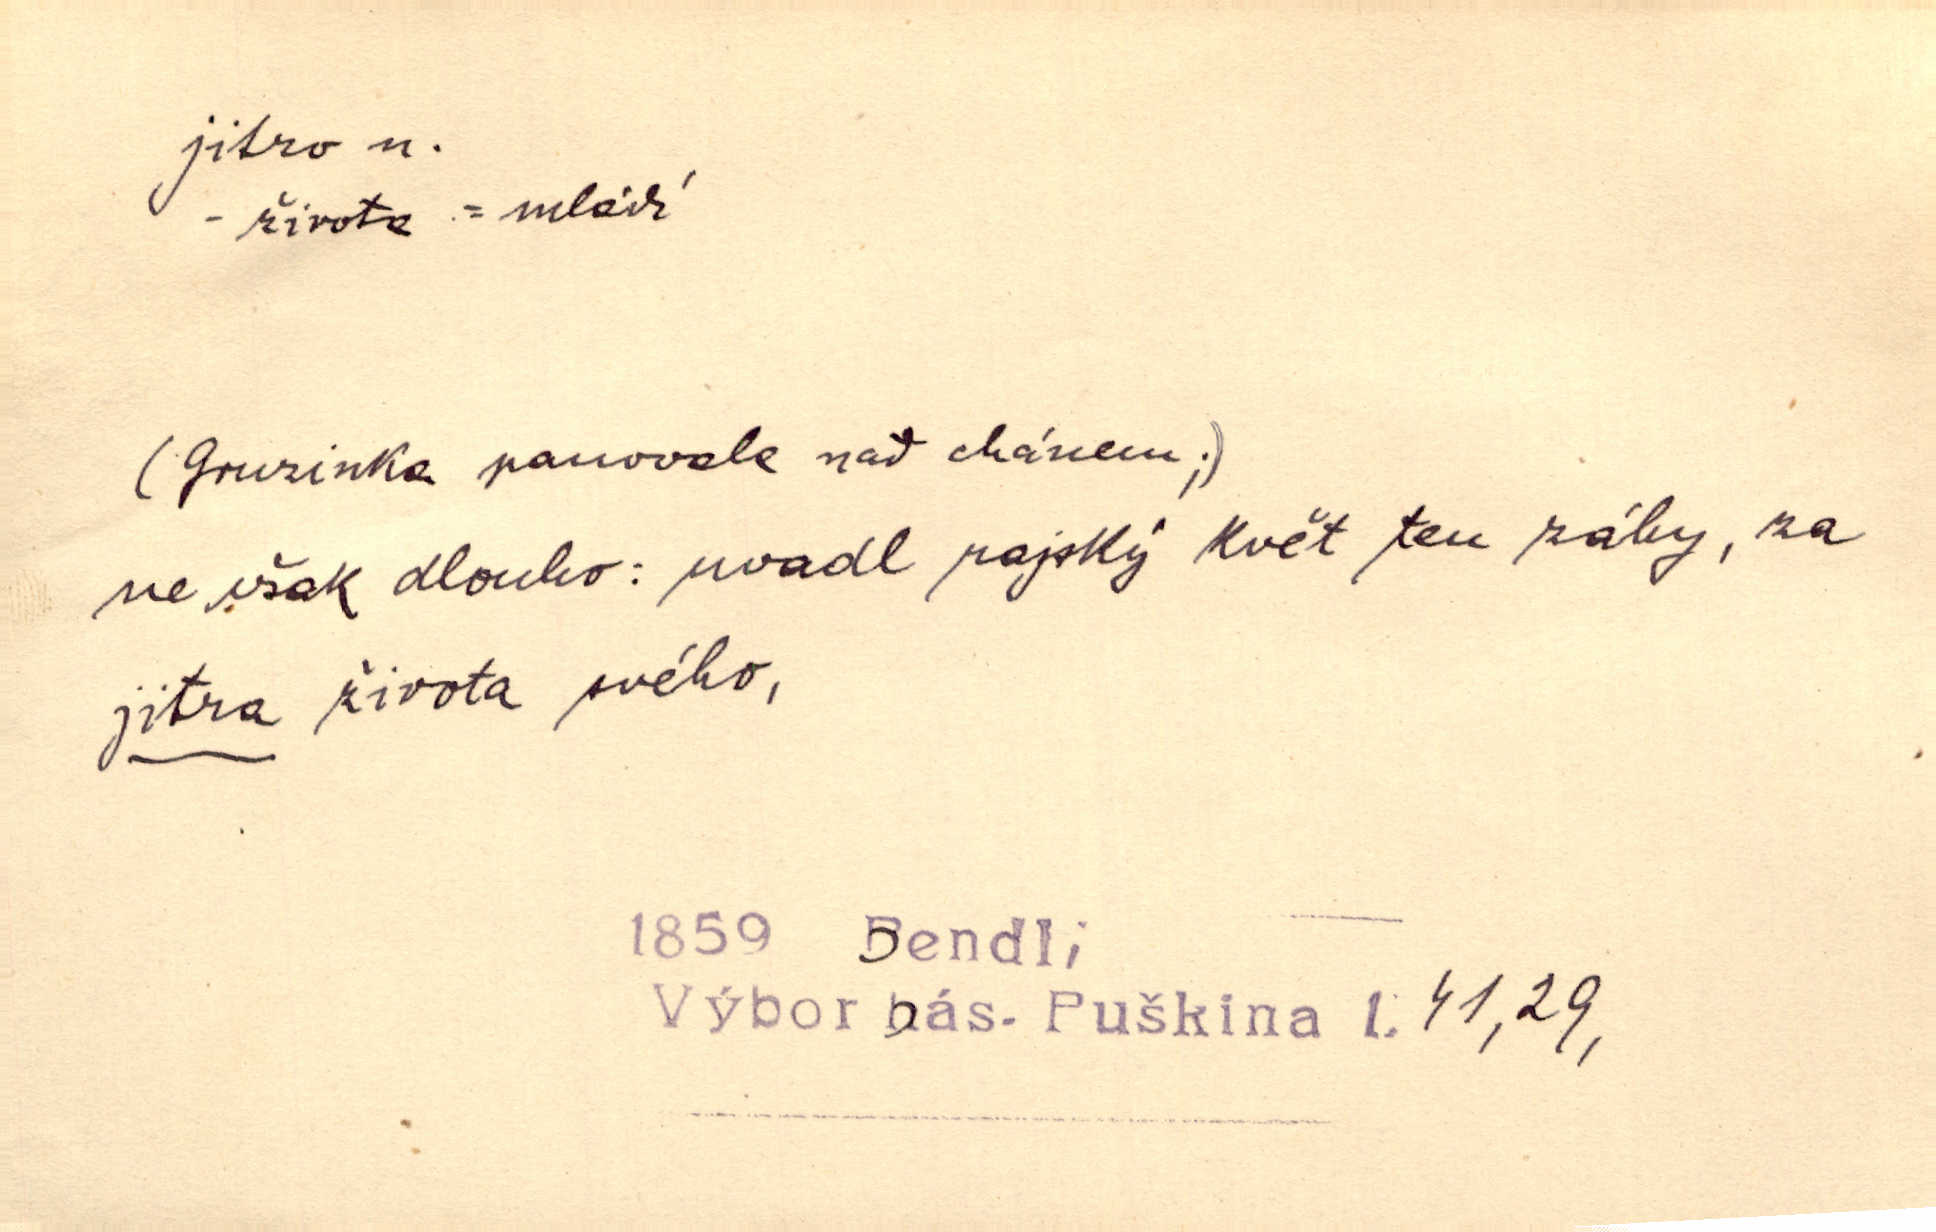 jitro n.
- života = mládí
(Gruzinka panovala nad chánem;)
ne však dlouho: uvadl rajský květ ten záhy, za
jitra života svého,
1859 Bendl
Výbor bás. Puškina I. 41,29,